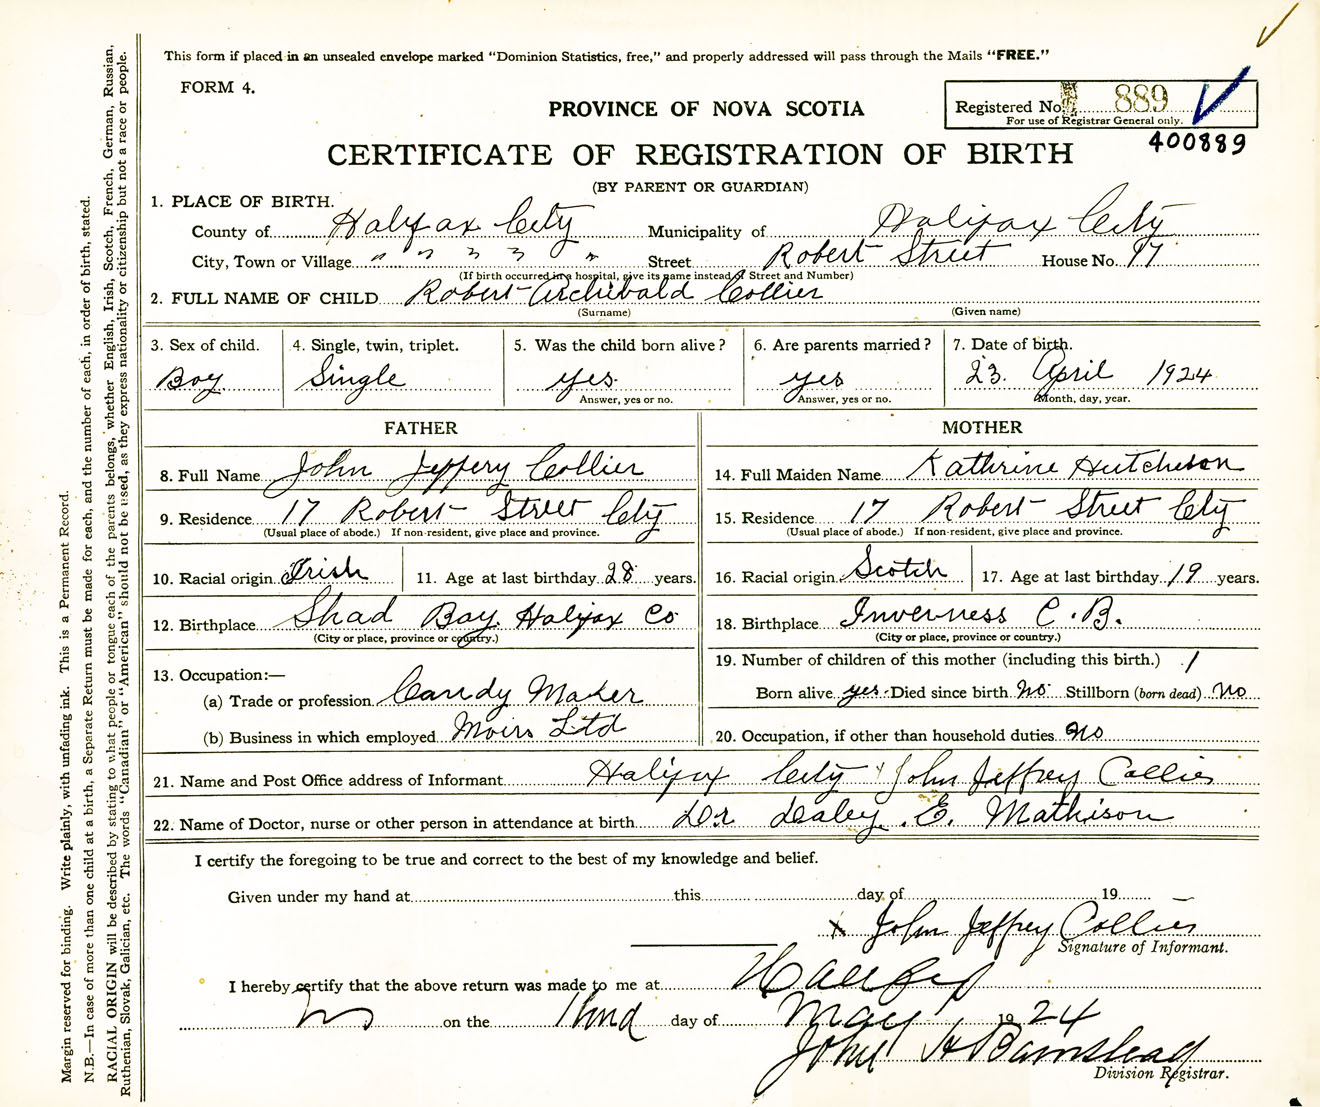 This form if placed in an unsealed envelope marked "Dominion Statistics, free," and properly addressed will pass through the Mails "FREE."
FORM 4.
PROVINCE OF NOVA SCOTIA
Registered No. 889
For use of Registrar General only.
400889
CERTIFICATE OF REGISTRATION OF BIRTH
(BY PARENT OR GUARDIAN)
1. PLACE OF BIRTH.
County of Halifax City Municipality of Halifax City
City, Town or Village " " " " " Street Robert Street House No. 17
(If birth occurred in a hospital, give its name instead of Street and Number)
2. FULL NAME OF CHILD Robert Archibald Collier
(Surname) (Given name)
3. Sex of child. 4. Single, twin, triplet. 5. Was the child born alive? 6. Are parents married? 7. Date of birth.
Boy Single yes yes 23 April 1924
Answer, yes or no. Answer, yes or no. Month, day, year.
FATHER MOTHER
8. Full Name John Jeffery Collier 14. Full Maiden Name Kathrine Hutcheson
9. Residence 17 Robert Street City 15. Residence 17 Robert Street City
(Usual place of abode.) If non-resident, give place and province. (Usual place of abode.) If non-resident, give place and province.
10. Racial origin Irish 11. Age at last birthday 28 years. 16. Racial origin Scotch 17. Age at last birthday 19 years.
12. Birthplace Shad Bay Halifax Co 18. Birthplace Inverness C.B.
(City or place, province or country.) (City or place, province or country.)
13. Occupation:— 19. Number of children of this mother (including this birth.) 1
(a) Trade or profession Candy Maker Born alive yes Died since birth no Stillborn (born dead) no
(b) Business in which employed Moirs Ltd 20. Occupation, if other than household duties no
21. Name and Post Office address of Informant Halifax City John Jeffrey Collier
22. Name of Doctor, nurse or other person in attendance at birth Dr Daley E. Mathison
I certify the foregoing to be true and correct to the best of my knowledge and belief.
Given under my hand at this day of 19
x John Jeffrey Collier
Signature of Informant.
I hereby certify that the above return was made to me at Halifax
on the day of May 1924
John H Barnstead
Division Registrar.
Margin reserved for binding. Write plainly, with unfading ink. This is a Permanent Record.
N.B.—In case of more than one child at a birth, a Separate Return must be made for each, and the number of each, in order of birth, stated.
RACIAL ORIGIN will be described by stating to what people or tongue each of the parents belongs, whether English, Irish, Scotch, French, German, Russian,
Ruthenian, Slovak, Galician, etc. The words "Canadian" or "American" should not be used, as they express nationality or citizenship but not a race or people.